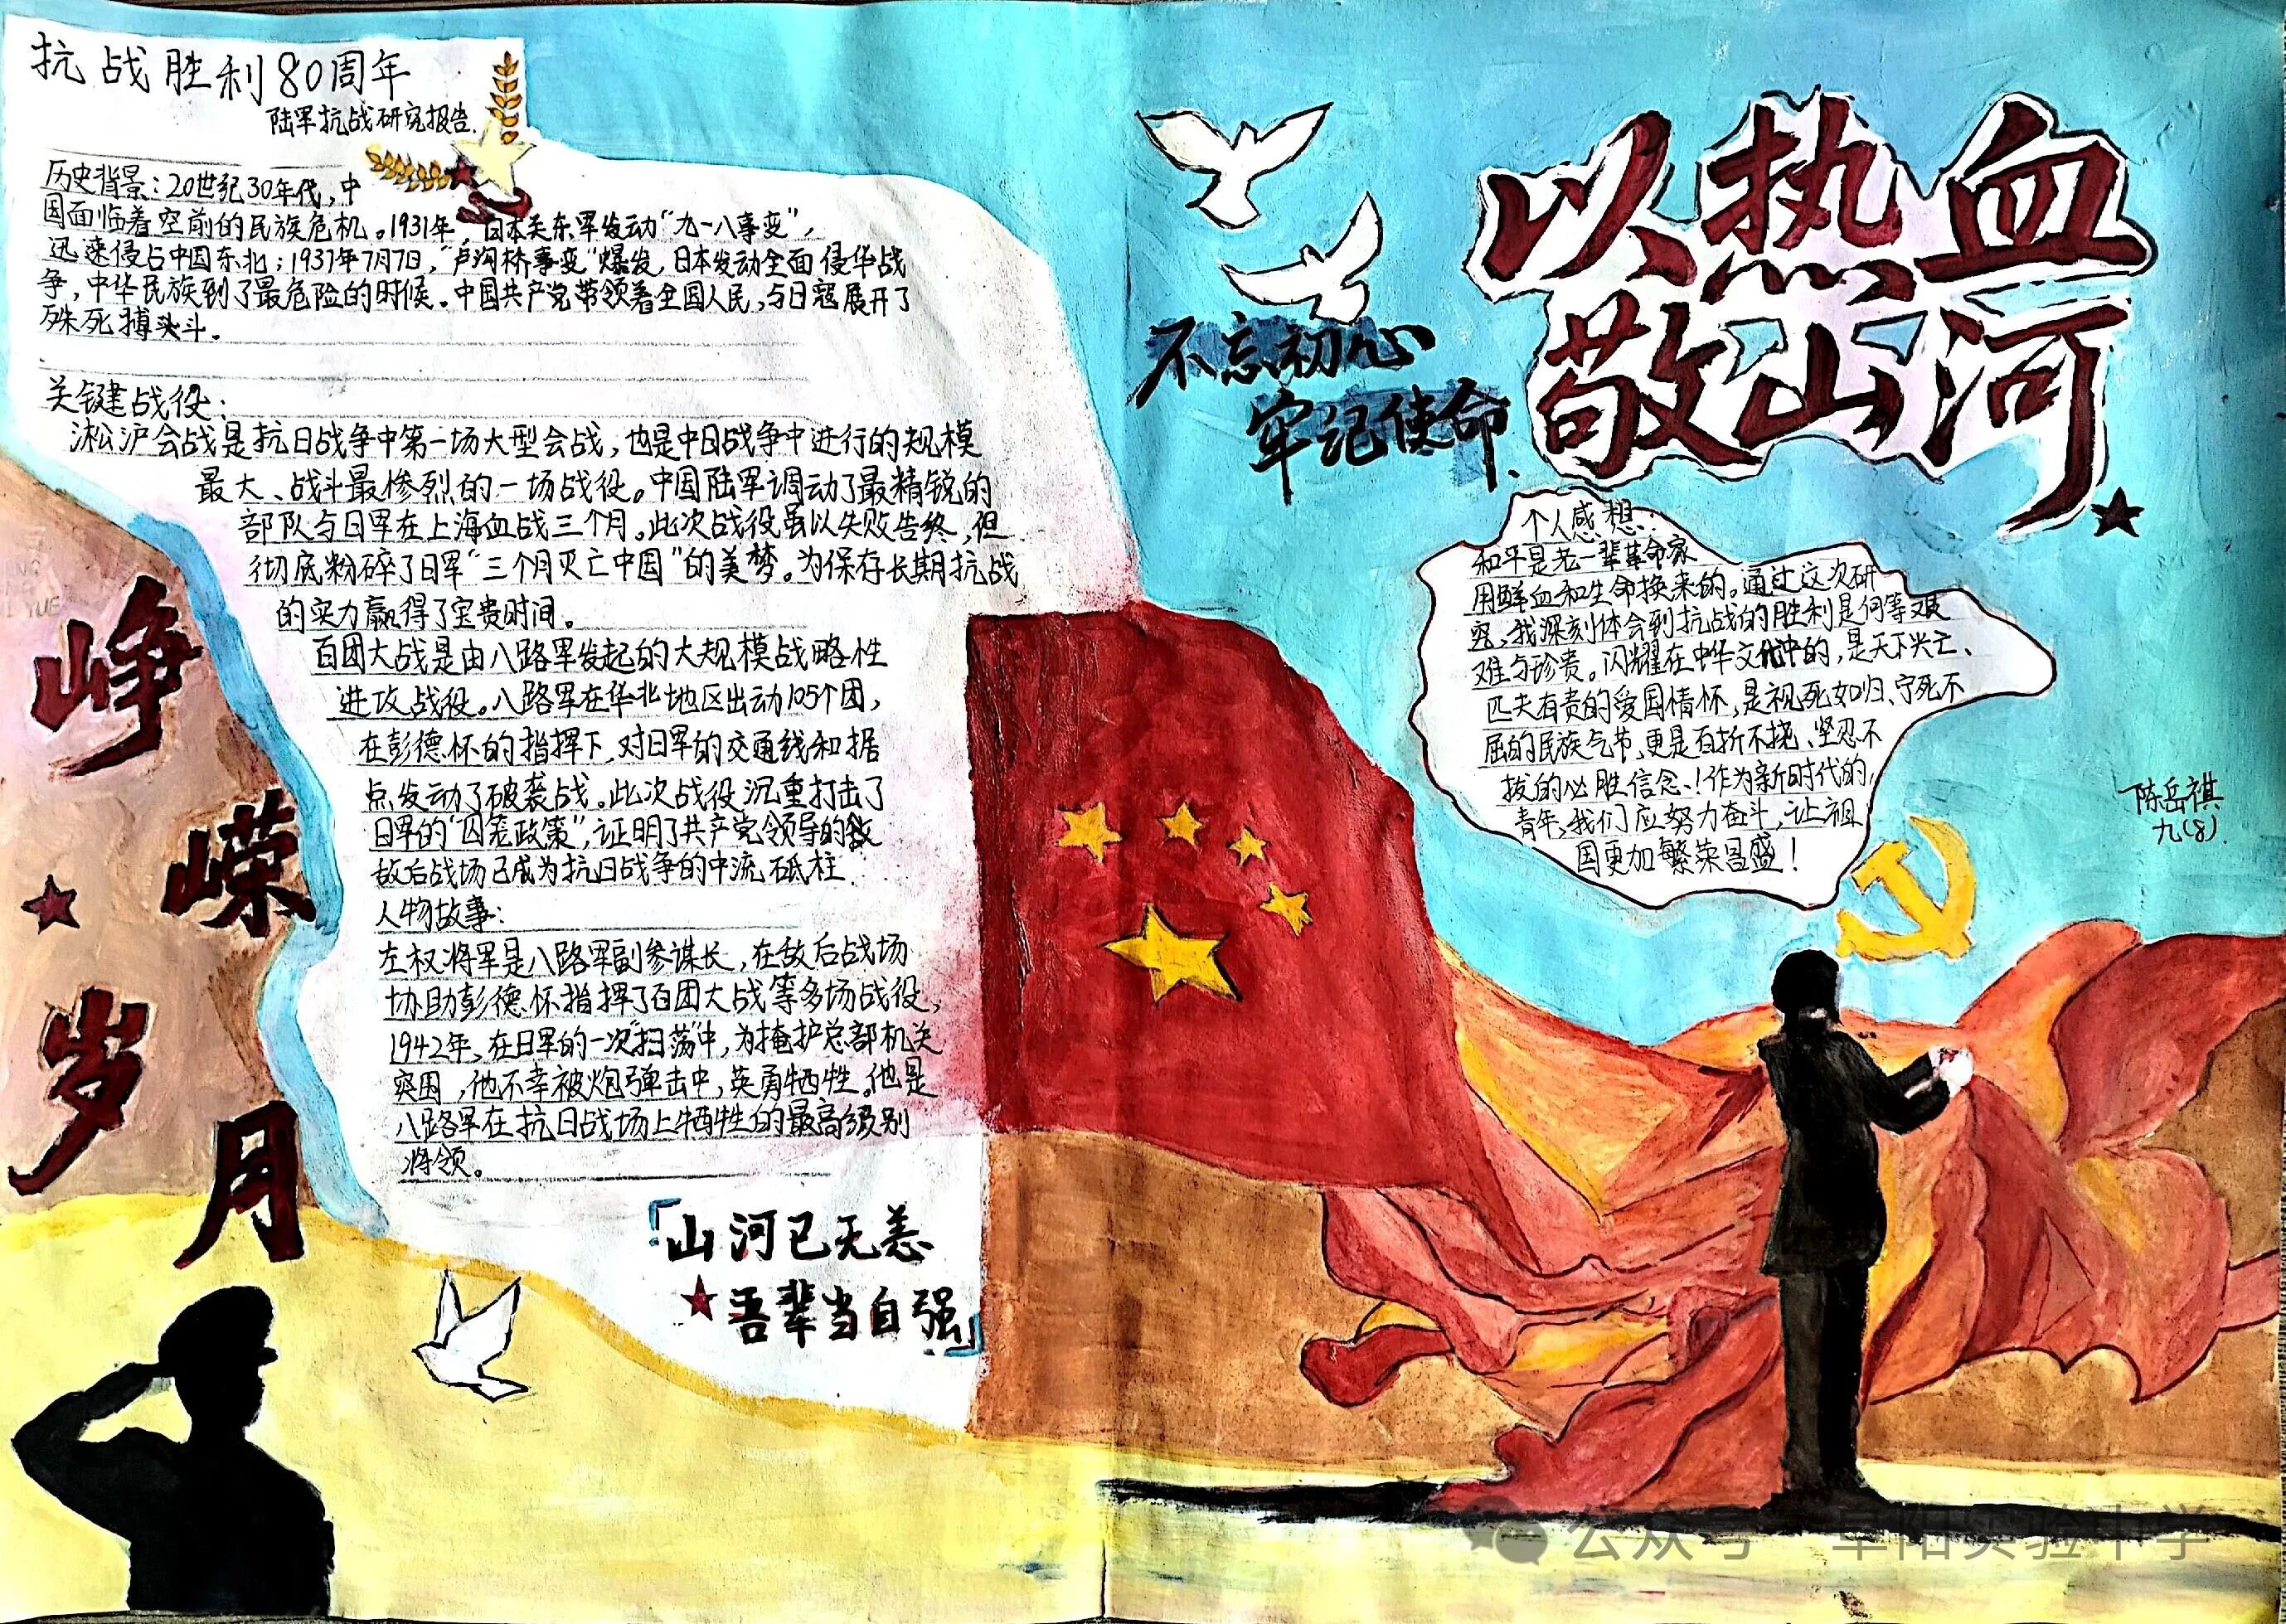 抗战胜利80周年
陆军抗战研究报告.
历史背景：20世纪30年代，中
国面临着空前的民族危机。1931年，日本关东军发动“九一八事变”，
迅速侵占中国东北；1937年7月7日，“卢沟桥事变”爆发，日本发动全面侵华战
争，中华民族到了最危险的时候。中国共产党带领着全国人民，与日寇展开了
殊死搏斗。
关键战役：
淞沪会战是抗日战争中第一场大型会战，也是中日战争中进行的规模
最大、战斗最惨烈的一场战役。中国陆军调动了最精锐的
部队与日军在上海血战三个月。此次战役虽以失败告终，但
彻底粉碎了日军“三个月灭亡中国”的美梦。为保存长期抗战
的实力赢得了宝贵时间。
百团大战是由八路军发起的大规模战略性
进攻战役。八路军在华北地区出动105个团，
在彭德怀的指挥下，对日军的交通线和据
点发动了破袭战。此次战役沉重打击了
日军的“囚笼政策”，证明了共产党领导的敌
敌后战场已成为抗日战争的中流砥柱.
人物故事：
左权将军是八路军副参谋长，在敌后战场
协助彭德怀指挥了百团大战等多场战役，
1942年，在日军的一次“扫荡”中，为掩护总部机关
突围，他不幸被炮弹击中，英勇牺牲。他是
八路军在抗日战场上牺牲的最高级别
将领。
「山河已无恙
吾辈当自强」
峥
嵘
岁
月
以热血
敬山河
不忘初心
牢记使命.
个人感想：
和平是老一辈革命家
用鲜血和生命换来的。通过这次研
究，我深刻体会到抗战的胜利是何等艰
难与珍贵。闪耀在中华文化中的，是天下兴亡、
匹夫有责的爱国情怀，是视死如归、宁死不
屈的民族气节，更是百折不挠、坚忍不
拔的必胜信念！作为新时代的
青年，我们应努力奋斗，让祖
国更加繁荣昌盛！
陈岳祺
九(8).
公众号 阜阳实验中学